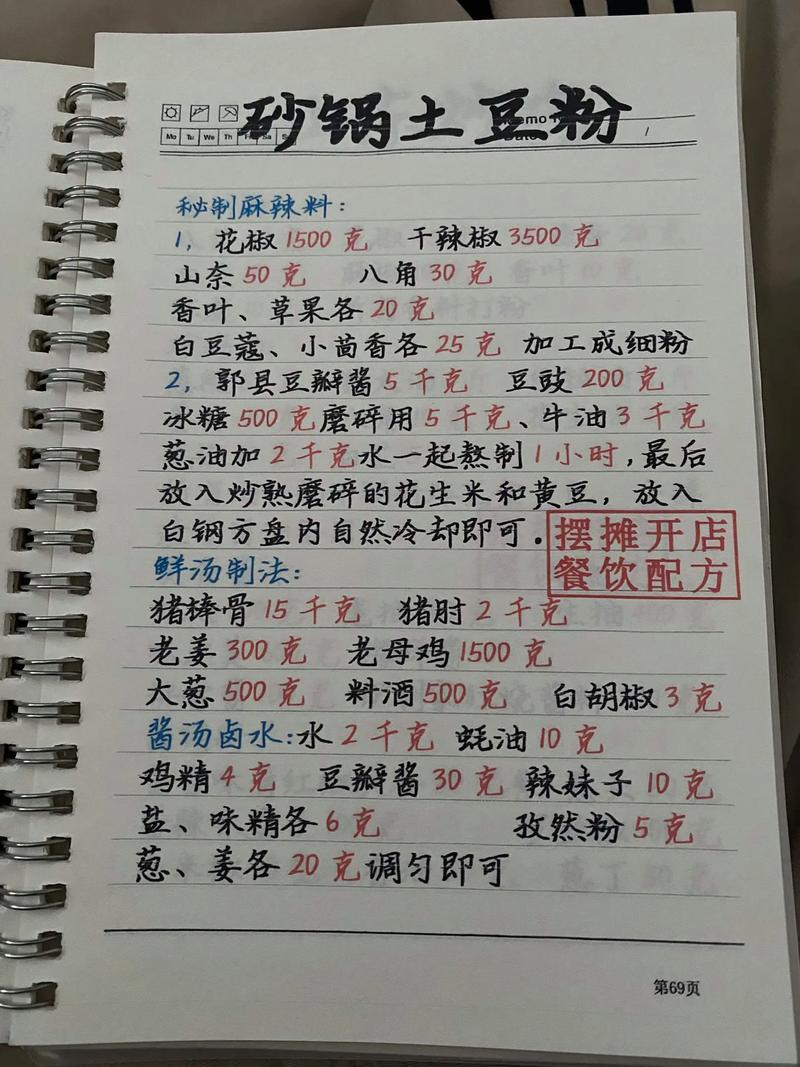 砂锅土豆粉
Mo Tu We Th
秘制麻辣料:
1, 花椒1500克 干辣椒3500克
山奈50克 八角30克
香叶、草果各20克
白豆蔻、小茴香各25克 加工成细粉
2, 郭县豆瓣酱5千克 豆豉200克
冰糖500克磨碎用5千克、牛油3千克
葱油加2千克水一起熬制1小时,最后
放入炒熟磨碎的花生米和黄豆,放入
白钢方盘内自然冷却即可.
摆摊开店
餐饮配方
鲜汤制法:
猪棒骨15千克 猪肘2千克
老姜300克 老母鸡1500克
大葱500克 料酒500克 白胡椒3克
酱汤卤水:水2千克 蚝油10克
鸡精4克 豆瓣酱30克 辣妹子10克
盐、味精各6克 孜然粉5克
葱、姜各20克调匀即可
第69页